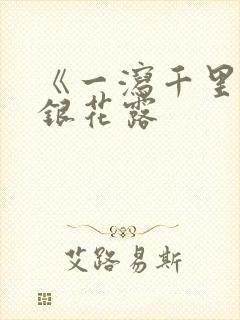 《一泻千里
银花露
艾路易斯